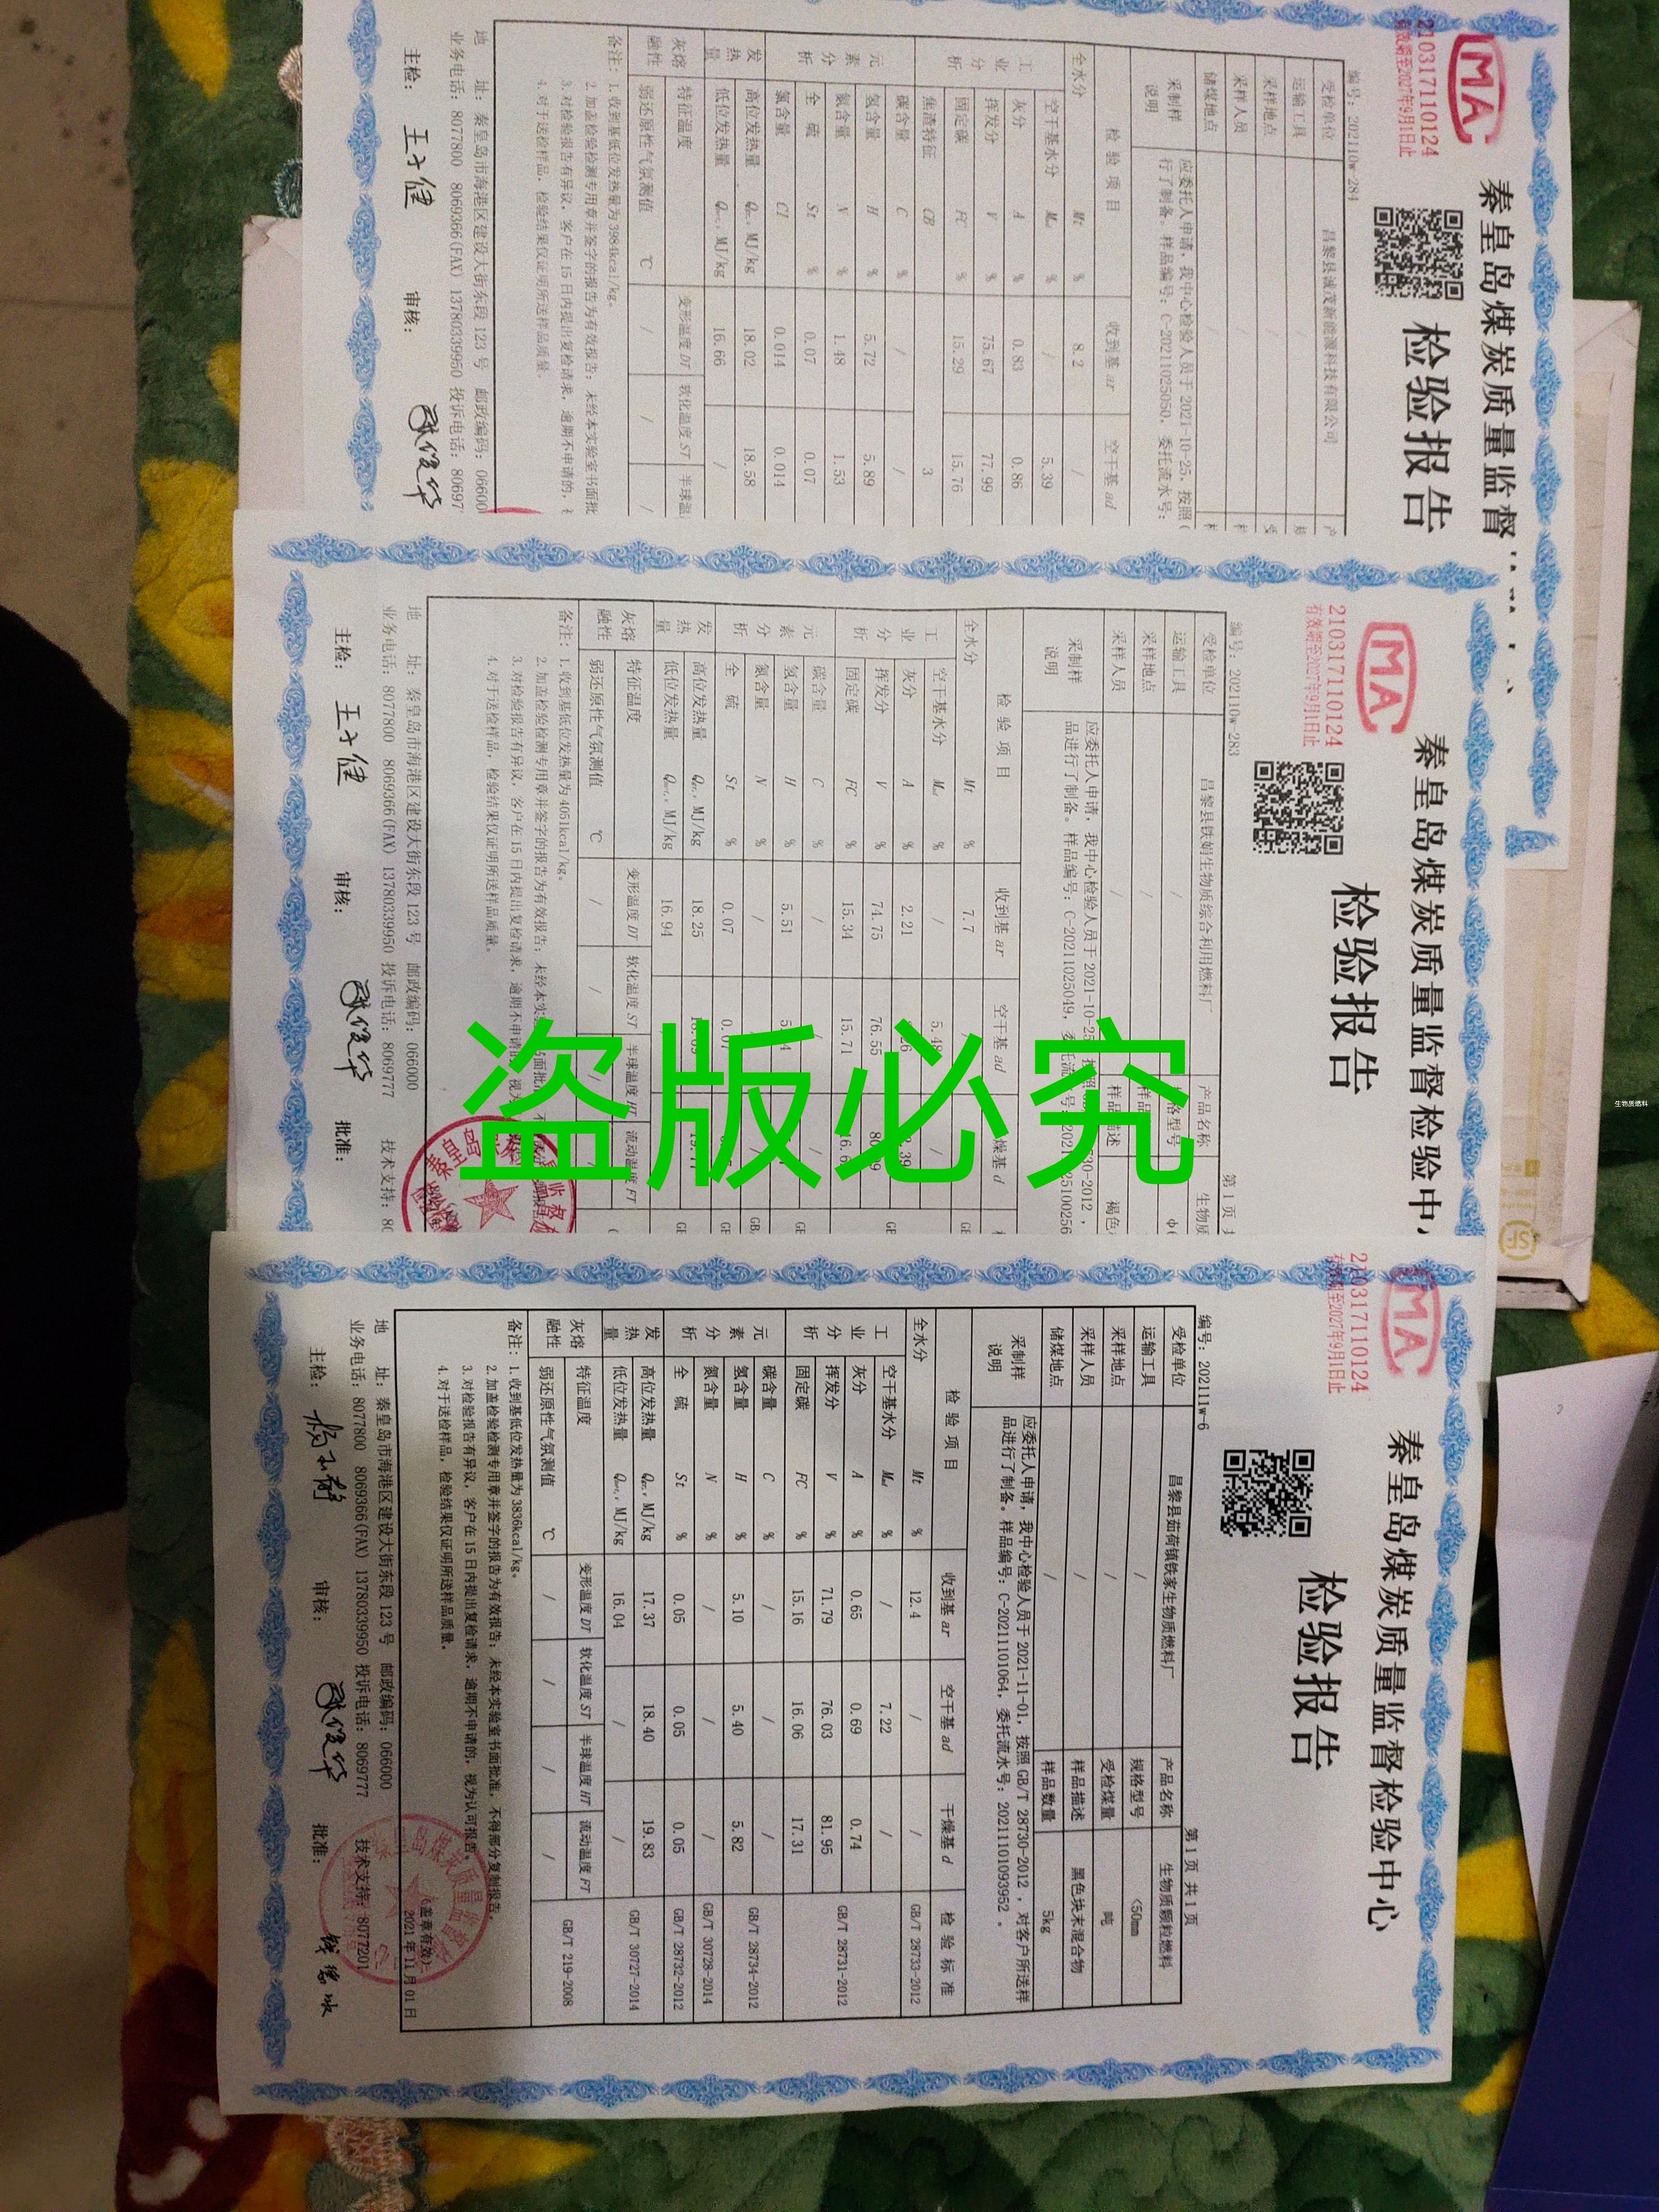 210317110124
有效期至2027年9月1日止
秦皇岛煤炭质量监督
检验报告
编号：202110w-284
受检单位 昌黎县诚茂新能源科技有限公司
运输工具 /
采样地点 /
采样人员 /
储煤地点 /
采制样说明 应委托人申请，我中心检验人员于 2021-10-25，按照
行了制备。样品编号：C-2021102505O，委托流水号：
检 验 项 目 收到基 ar 空干基 ad
全水分 Mt % 8.2 /
工业分析 空干基水分 Mad % / 5.39
灰分 A % 0.83 0.86
挥发分 V % 75.67 77.99
固定碳 FC % 15.29 15.76
焦渣特征 CB 3
元素分析 碳含量 C % / /
氢含量 H % 5.72 5.89
氮含量 N % 1.48 1.53
全 硫 St % 0.07 0.07
氯含量 Cl % 0.014 0.014
发热量 高位发热量 MJ/kg 18.02 18.58
低位发热量 MJ/kg 16.66 /
灰熔融性 特征温度 变形温度 DT 软化温度 ST 半球温
弱还原性气氛测值 ℃ / / /
备注：1. 收到基低位发热量为 3984kcal/kg。
2. 加盖检验检测专用章并签字的报告为有效报告；未经本实验室书面批
3. 对检验报告有异议，客户在 15 日内提出复检请求，逾期不申请的，
4. 对于送检样品，检验结果仅证明所送样品质量。
地 址：秦皇岛市海港区建设大街东段 123 号 邮政编码：06600
业务电话：8077800 8069366(FAX) 13780339950 投诉电话：80697
主检： 审核：
MA
210317110124
有效期至2027年9月1日止
秦皇岛煤炭质量监督检验中
检验报告
编号：202110w-283 第 1 页
受检单位 昌黎县铁娟生物质综合利用燃料厂 产品名称 生物质
运输工具 / 格型号
采样地点 / 样品
采样人员 / 样品描述 褐色
采制样说明 应委托人申请，我中心检验人员于 2021-10-25，按照 30-2012，
品进行了制备。样品编号：C-20211025049，
检 验 项 目 收到基 ar 空干基 ad 燥基 d
全水分 Mt % 7.7
工业分析 空干基水分 Mad % / 5.48 /
灰分 A % 2.21
挥发分 V % 74.75 76.55
固定碳 FC % 15.34 15.71
元素分析 碳含量 C % /
氢含量 H % 5.51
氮含量 N % /
全 硫 St % 0.07
发热量 高位发热量 MJ/kg 18.25
低位发热量 MJ/kg 16.94
灰熔融性 特征温度 变形温度 DT 软化温度 ST 半球温度 HT 流动温度 FT
弱还原性气氛测值 ℃ / / /
备注：1. 收到基低位发热量为 4051kcal/kg。
2. 加盖检验检测专用章并签字的报告为有效报告；未经本实 书面批
3. 对检验报告有异议，客户在 15 日内提出复检请求，逾期不申请的 视为
4. 对于送检样品，检验结果仅证明所送样品质量。
地 址：秦皇岛市海港区建设大街东段 123 号 邮政编码：066000
业务电话：8077800 8069366(FAX) 13780339950 投诉电话：8069777 技术支持：80
主检： 审核： 批准：
盗版必究
生物质燃料
MA
210317110124
有效期至2027年9月1日止
秦皇岛煤炭质量监督检验中心
检验报告
编号：202111w-6 第 1 页 共 1 页
受检单位 昌黎县茹荷镇铁家生物质燃料厂 产品名称 生物质颗粒燃料
运输工具 / 规格型号 <50mm
采样地点 / 受检煤量 吨
采样人员 / 样品描述 黑色块末混合物
储煤地点 / 样品数量 5kg
采制样说明 应委托人申请，我中心检验人员于 2021-11-01，按照 GB/T 28730-2012，对客户所送样
品进行了制备。样品编号：C-20211101064，委托流水号：20211101093952 。
检 验 项 目 收到基 ar 空干基 ad 干燥基 d 检 验 标 准
全水分 Mt % 12.4 / / GB/T 28733-2012
工业分析 空干基水分 Mad % / 7.22 / GB/T 28731-2012
灰分 A % 0.65 0.69 0.74
挥发分 V % 71.79 76.03 81.95
固定碳 FC % 15.16 16.06 17.31
元素分析 碳含量 C % / / / GB/T 28734-2012
氢含量 H % 5.10 5.40 5.82
氮含量 N % / / / GB/T 30728-2014
全 硫 St % 0.05 0.05 0.05 GB/T 28732-2012
发热量 高位发热量 MJ/kg 17.37 18.40 19.83 GB/T 30727-2014
低位发热量 MJ/kg 16.04 / /
灰熔融性 特征温度 变形温度 DT 软化温度 ST 半球温度 HT 流动温度 FT GB/T 219-2008
弱还原性气氛测值 ℃ / / / /
备注：1. 收到基低位发热量为 3836kcal/kg。
2. 加盖检验检测专用章并签字的报告为有效报告；未经本实验室书面批准，不得部分复制报告。
3. 对检验报告有异议，客户在 15 日内提出复检请求，逾期不申请的，视为认可报告。
4. 对于送检样品，检验结果仅证明所送样品质量。
（盖章有效）
2021 年 11 月 01 日
地 址：秦皇岛市海港区建设大街东段 123 号 邮政编码：066000
业务电话：8077800 8069366(FAX) 13780339950 投诉电话：8069777 技术支持：8077201
主检： 审核： 批准：